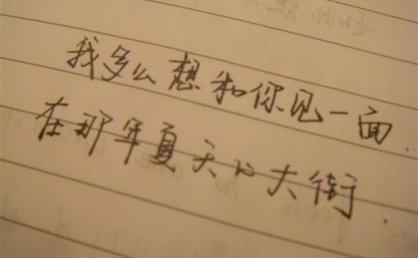 我多么想和你见一面.
在那年夏天的大街.